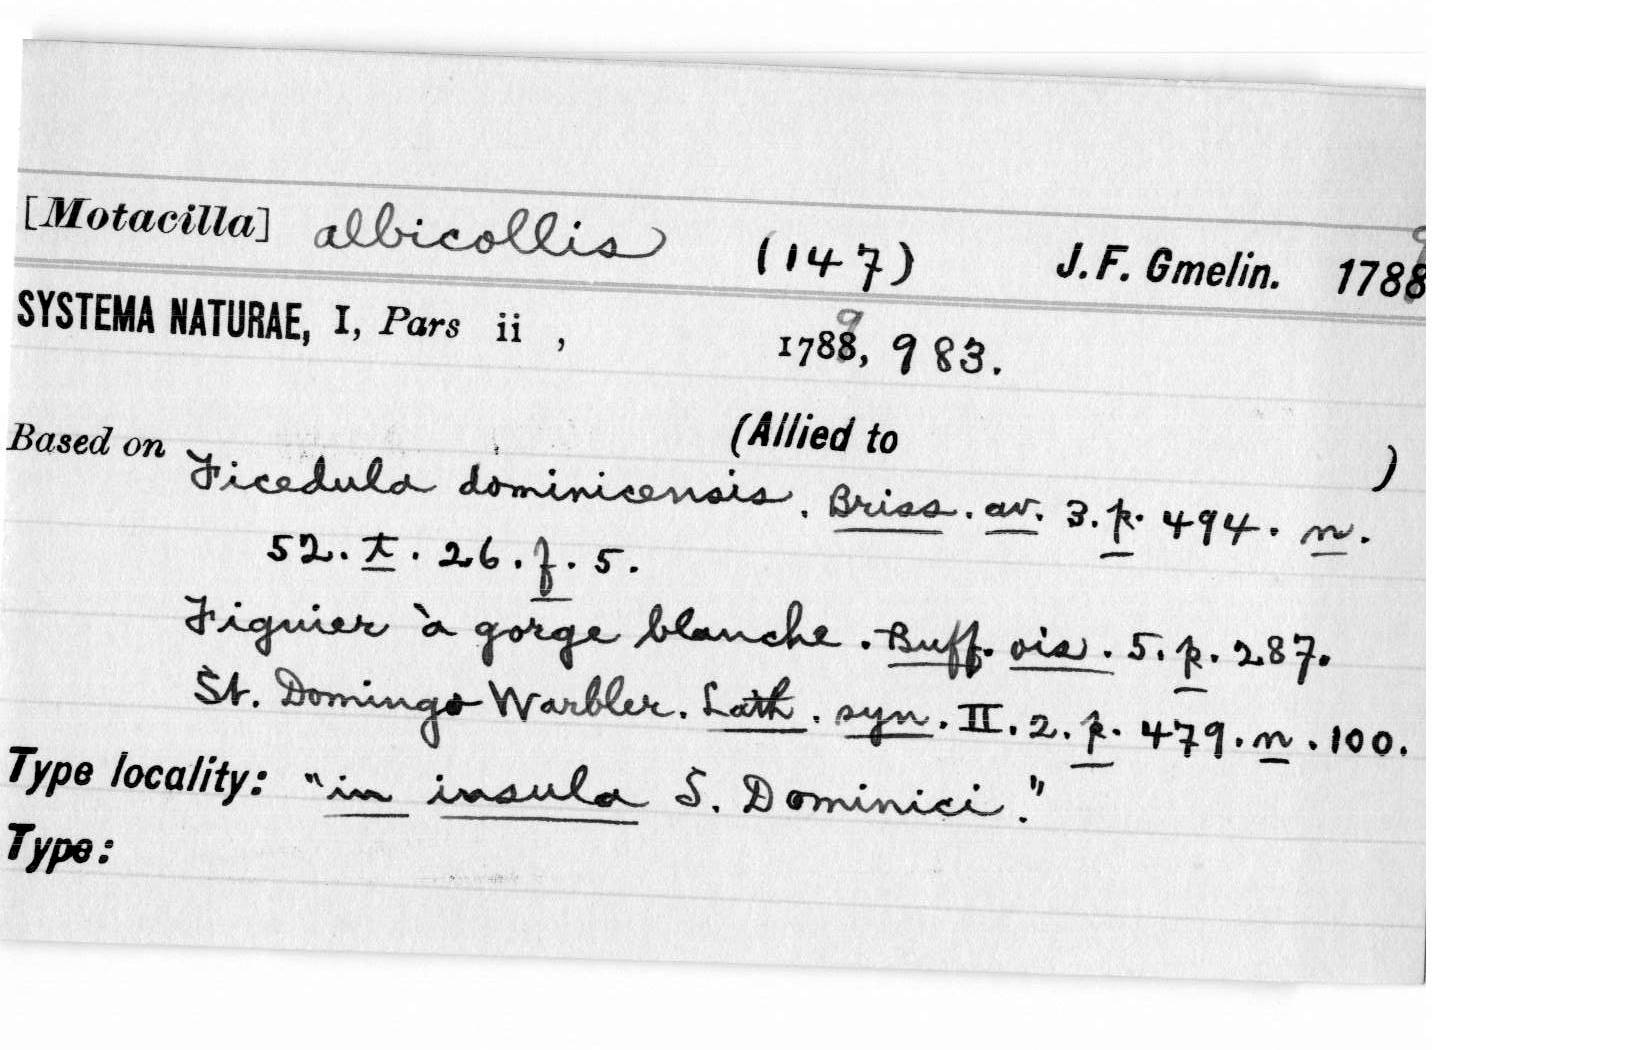 [Motacilla] albicollis (147) J. F. Gmelin. 1789
SYSTEMA NATURAE, I, Pars ii , 1789, 983.
(Allied to )
Based on Ficedula dominicensis. Briss. av. 3. p. 494. n.
52. t. 26. f. 5.
Figuier à gorge blanche. Buff. ois. 5. p. 287.
St. Domingo Warbler. Lath. syn. II. 2. p. 479. n. 100.
Type locality: "in insula S. Dominici."
Type: